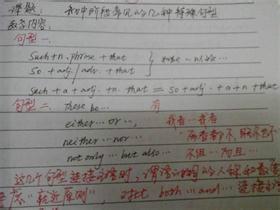 课题: 初中阶段常见的几种特殊句型
教学内容:
句型一、
such + n. phrase + that
so + adj./adv. + that 如此…以致…
such + a + adj. + n. + that = so + adj. + a + n + that
句型二、 there be... 有
either...or... 或者…或者
neither...nor... 两者都不
not only...but also... 不但…而且…
这几个句型连接主语时, 谓语动词的人称和数
"就近原则", 对比 both...and... 连接